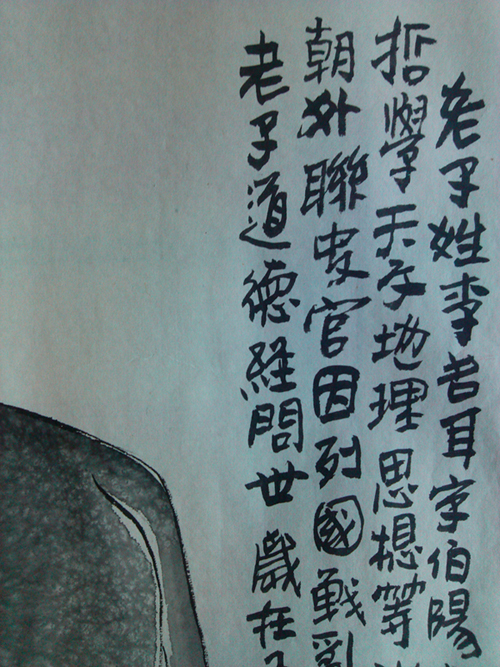 老子姓李名耳字伯陽
哲學天文地理思想等
朝外聯史官因列國戰亂
老子道德経問世 歲在